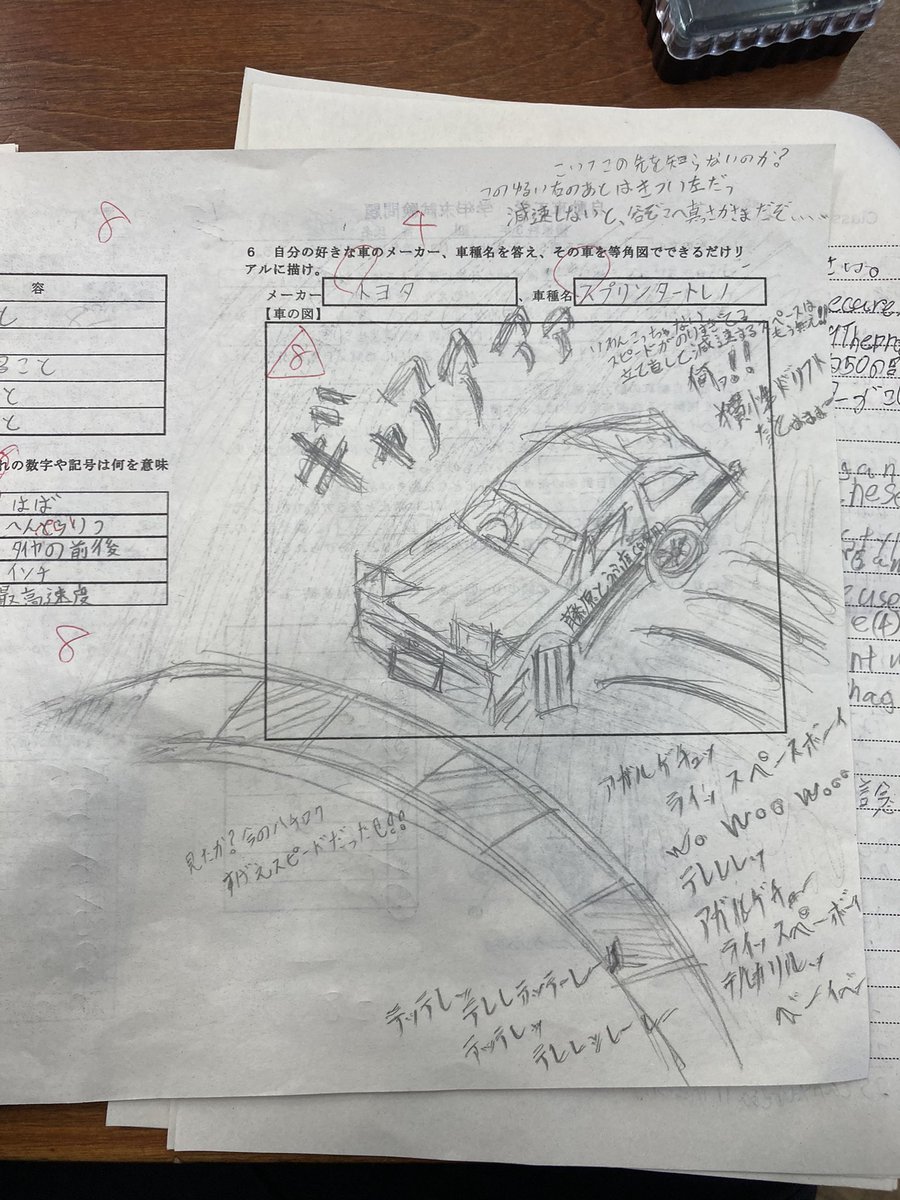 こいつこの先を知らないのか?
このゆるい右のあとはきつい左だっ
減速しないと、谷ぞこへ真っさかさまだぞ....
8
4
6 自分の好きな車のメーカー、車種名を答え、その車を等角図でできるだけリ
アルに描け。
メーカー トヨタ 、車種名 スプリンタートレノ
【車の図】
8
ギャアアアア
いわんこっちゃない
スピードがのりすぎてる
立て直して減速する
スペースは
もう無え!!
何っ!!
ドリフト
藤原とうふ店(自家用)
容
こと
と
と
れの数字や記号は何を意味
はば
へんぺいりつ
タイヤの前後
インチ
最高速度
8
見たか?今のハチロク
すげえスピードだったぜ!!
アガルゲチュッ
ライッ スペースボーイ
Wo Woo Wooo
テレレレッ
アガルゲチュー
ライッ スペーボーイ
ベーイベー
テッテレッ
テッテレッ
Class
250の